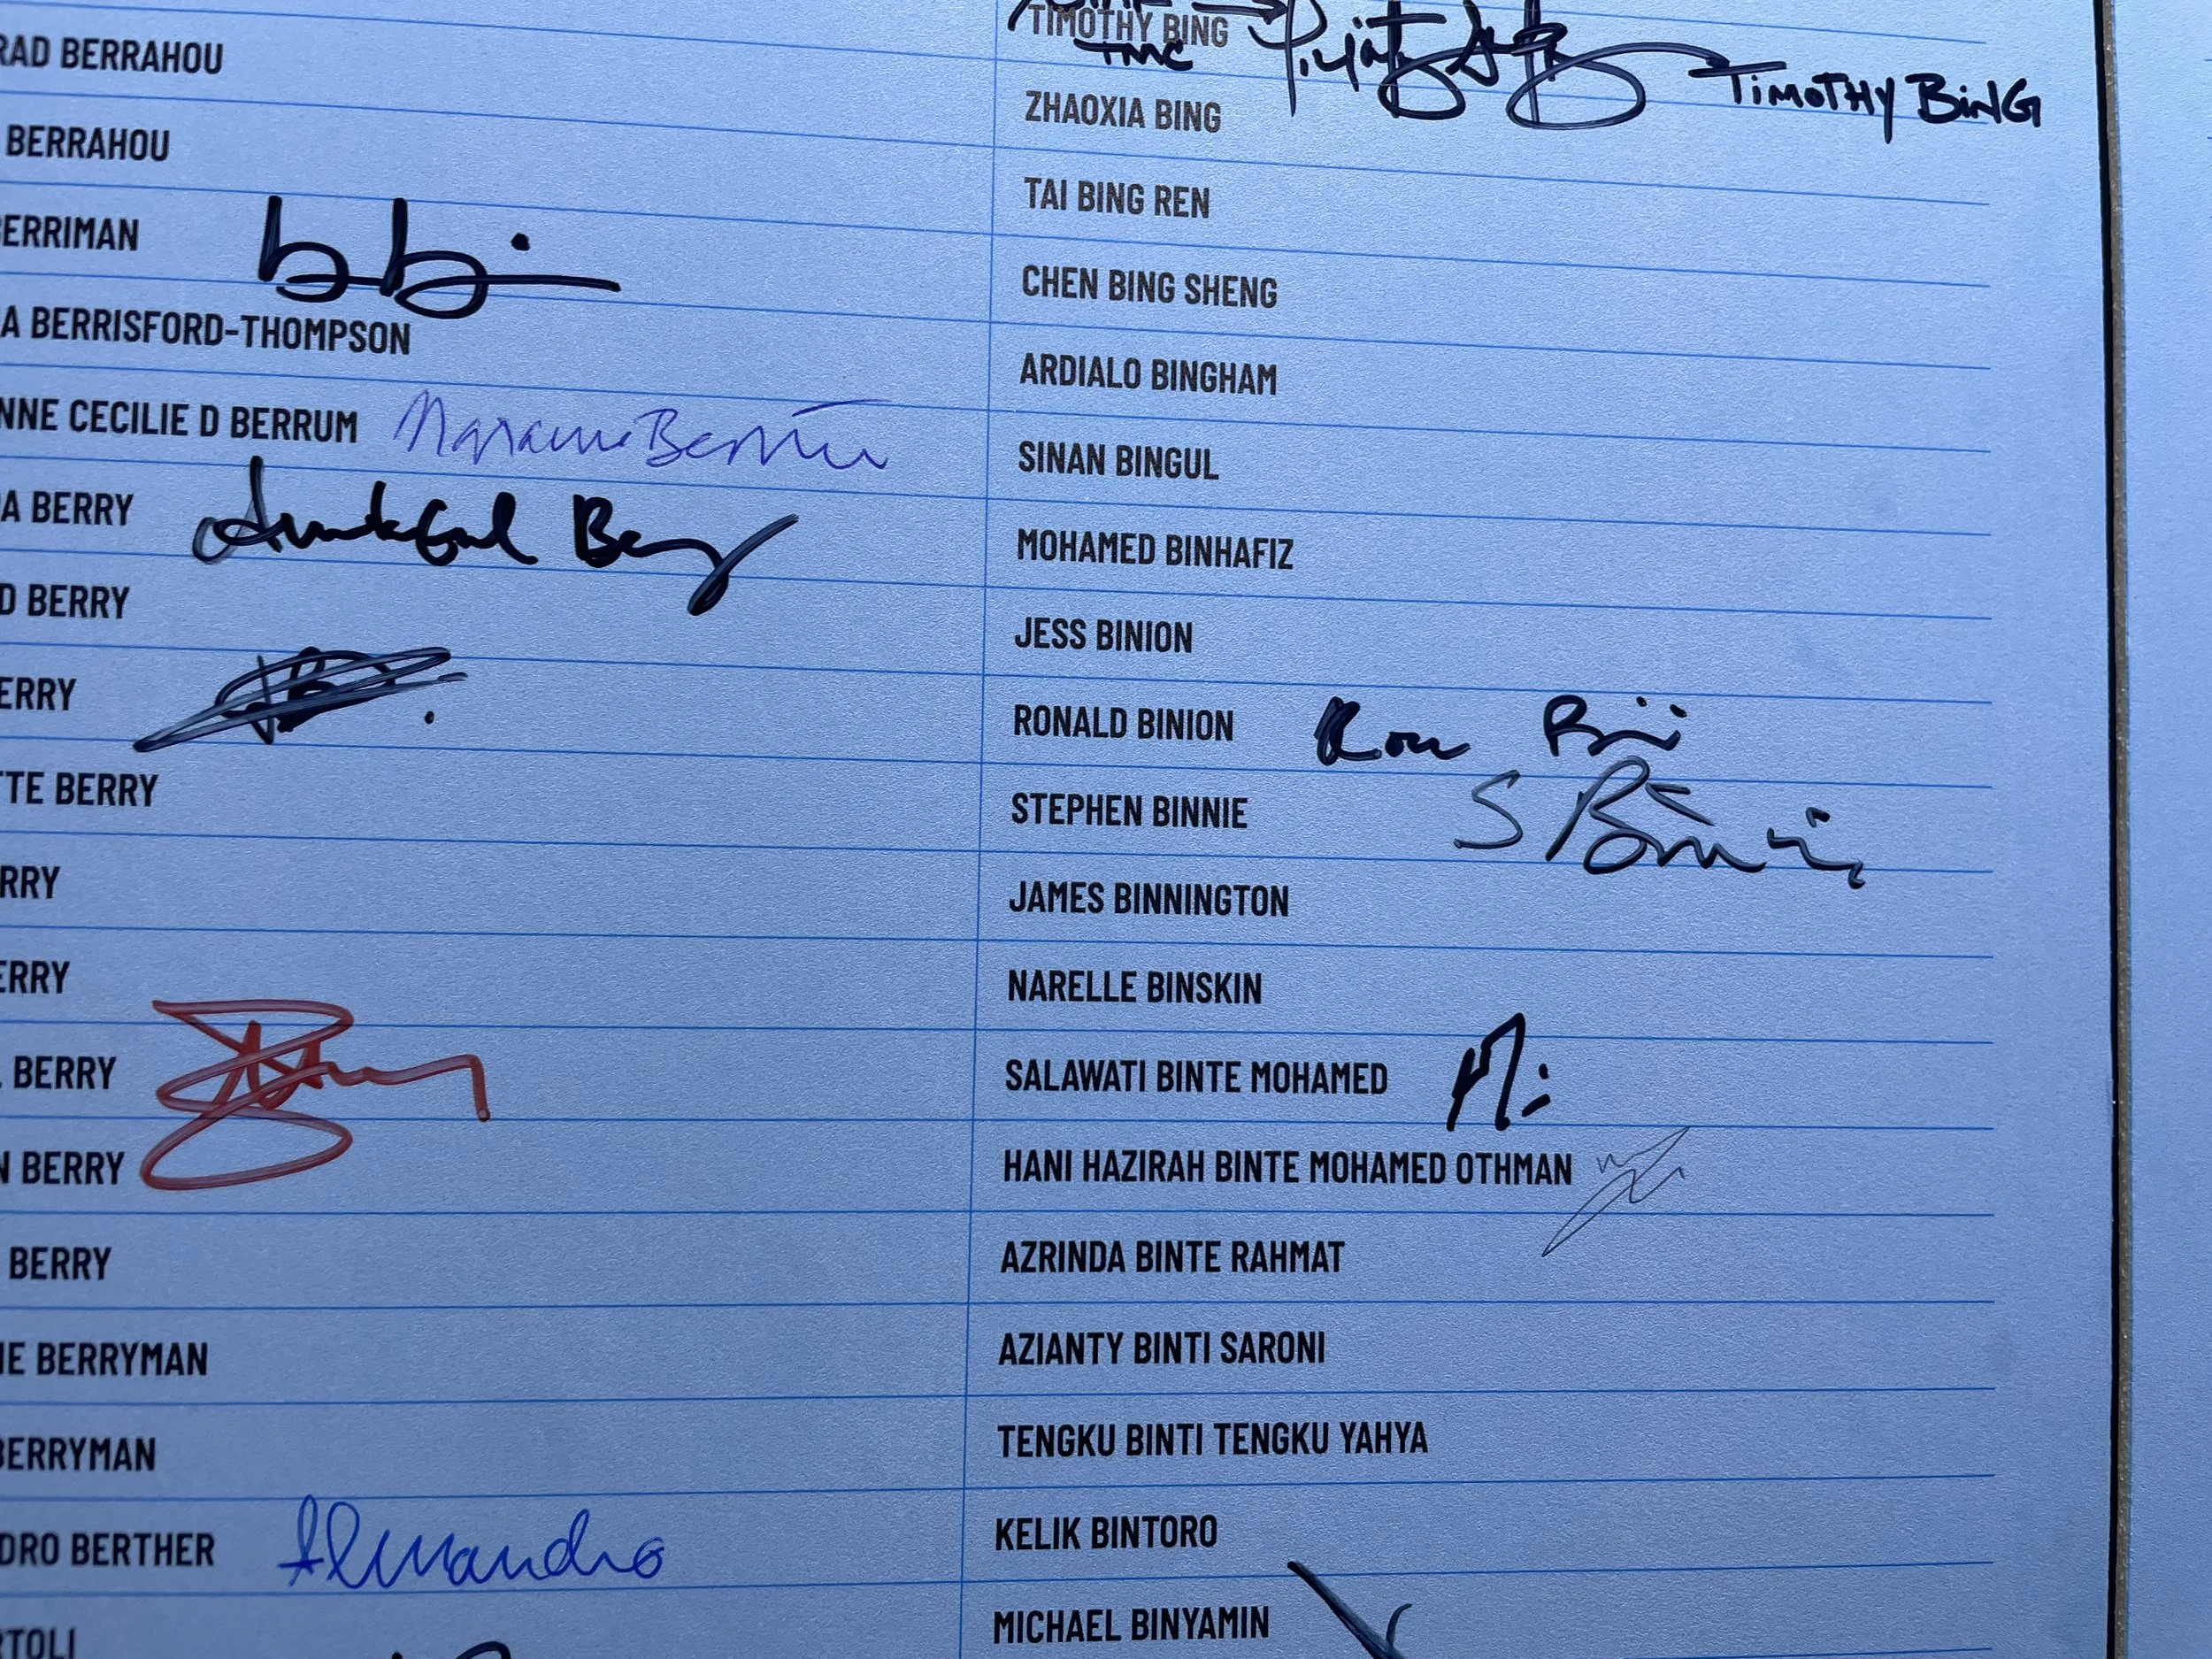 RAD BERRAHOU
BERRAHOU
ERRIMAN
A BERRISFORD-THOMPSON
NNE CECILIE D BERRUM
A BERRY
Berry
D BERRY
ERRY
TTE BERRY
RRY
ERRY
BERRY
N BERRY
BERRY
IE BERRYMAN
BERRYMAN
DRO BERTHER
RTOLI
TIMOTHY BING
TIMOTHY BING
ZHAOXIA BING
TAI BING REN
CHEN BING SHENG
ARDIALO BINGHAM
SINAN BINGUL
MOHAMED BINHAFIZ
JESS BINION
RONALD BINION Ron
STEPHEN BINNIE S Binnie
JAMES BINNINGTON
NARELLE BINSKIN
SALAWATI BINTE MOHAMED
HANI HAZIRAH BINTE MOHAMED OTHMAN
AZRINDA BINTE RAHMAT
AZIANTY BINTI SARONI
TENGKU BINTI TENGKU YAHYA
KELIK BINTORO
MICHAEL BINYAMIN